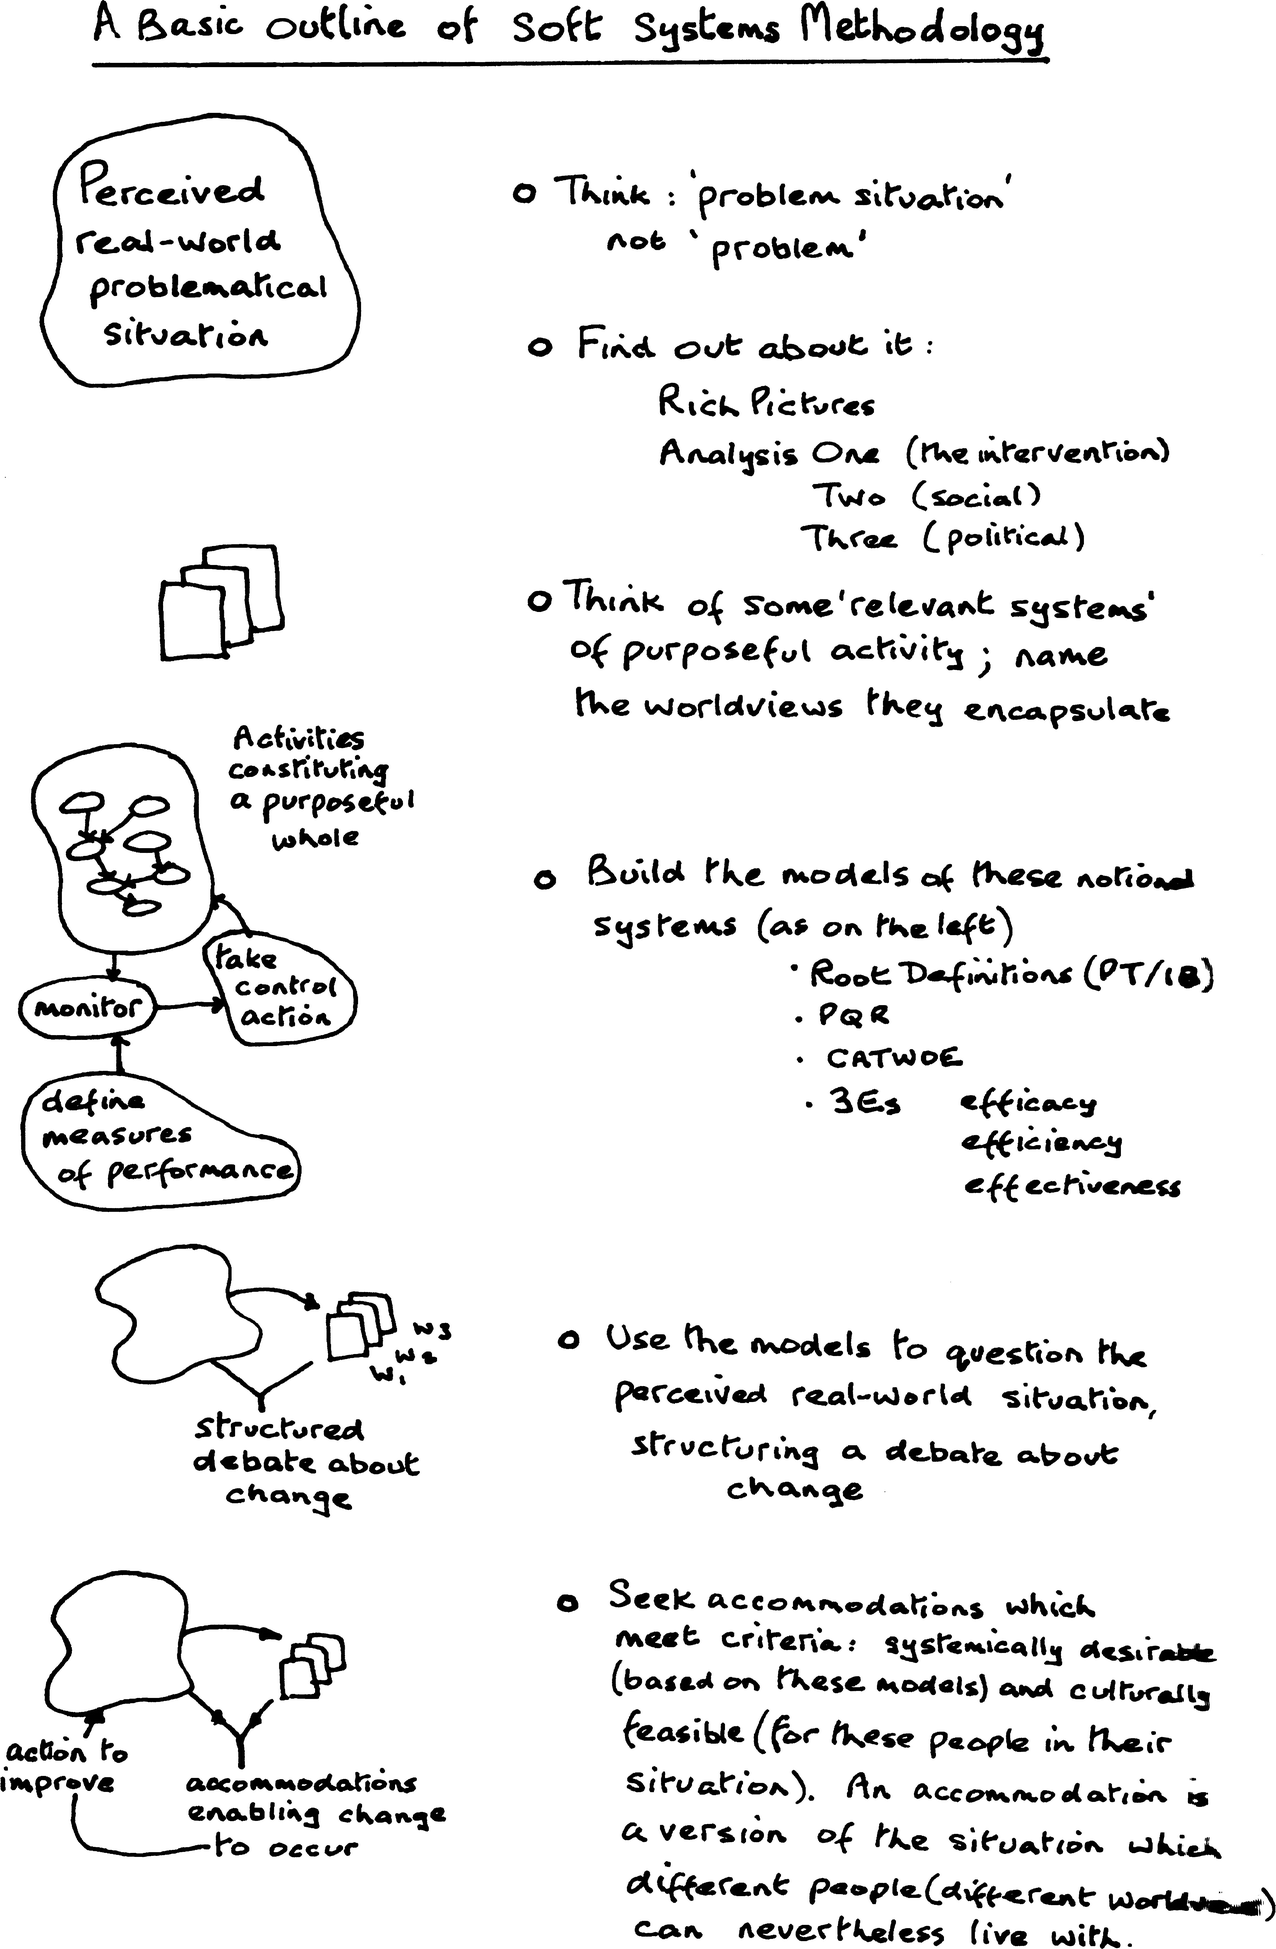 A Basic Outline of Soft Systems Methodology
Perceived
real-world
problematical
situation
o Think : 'problem situation'
not 'problem'
o Find out about it :
Rich Pictures
Analysis One (the intervention)
Two (social)
Three (political)
o Think of some 'relevant systems'
of purposeful activity ; name
the worldviews they encapsulate
Activities
constituting
a purposeful
whole
take
control
action
monitor
define
measures
of performance
o Build the models of these notional
systems (as on the left)
· Root Definitions (PT/
· PQR
· CATWOE
· 3Es efficacy
efficiency
effectiveness
W3
W2
W1
structured
debate about
change
o Use the models to question the
perceived real-world situation,
structuring a debate about
change
action to
improve
accommodations
enabling change
to occur
o Seek accommodations which
meet criteria: systemically desirable
(based on these models) and culturally
feasible (for these people in their
situation). An accommodation is
a version of the situation which
different people (different
can nevertheless live with.